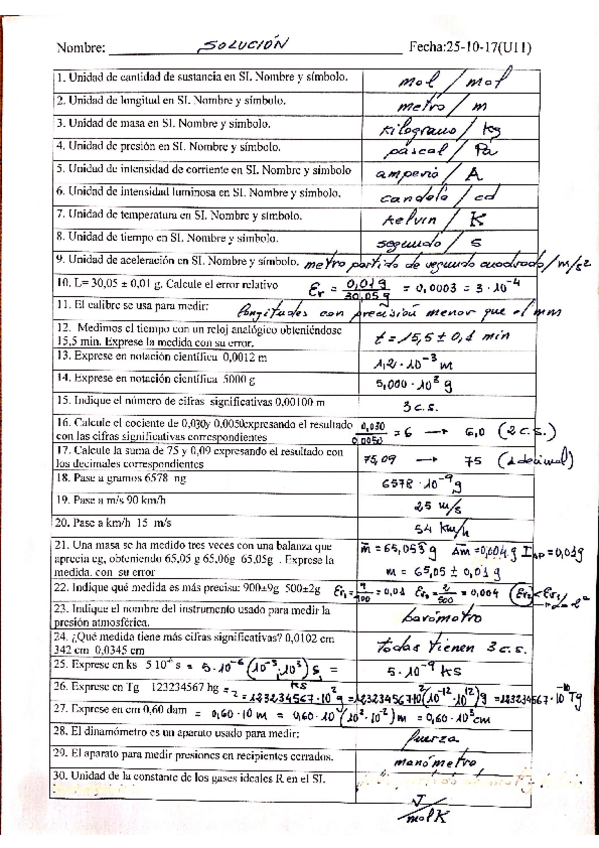 Nombre: SOLUCIÓN Fecha:25-10-17(U11)
1. Unidad de cantidad de sustancia en SI. Nombre y símbolo. mol / mol
2. Unidad de longitud en SI. Nombre y símbolo. metro / m
3. Unidad de masa en SI. Nombre y símbolo. Kilogramo / Kg
4. Unidad de presión en SI. Nombre y símbolo. pascal / Pa
5. Unidad de intensidad de corriente en SI. Nombre y símbolo amperio / A
6. Unidad de intensidad luminosa en SI. Nombre y símbolo. candela / cd
7. Unidad de temperatura en SI. Nombre y símbolo. Kelvin / K
8. Unidad de tiempo en SI. Nombre y símbolo. segundo / s
9. Unidad de aceleración en SI. Nombre y símbolo. metro partido de segundo cuadrado / m/s²
10. L= 30,05 ± 0,01 g. Calcule el error relativo Er = 0,01g / 30,05g = 0,0003 = 3·10⁻⁴
11. El calibre se usa para medir: longitudes con precisión menor que el mm
12. Medimos el tiempo con un reloj analógico obteniéndose
15,5 min. Exprese la medida con su error. t = 15,5 ± 0,1 min
13. Exprese en notación científica 0,0012 m 1,2·10⁻³ m
14. Exprese en notación científica 5000 g 5,000·10³ g
15. Indique el número de cifras significativas 0,00100 m 3 c.s.
16. Calcule el cociente de 0,030y 0,0050expresando el resultado 0,030 / 0,0050 = 6 → 6,0 (2 c.s.)
con las cifras significativas correspondientes
17. Calcule la suma de 75 y 0,09 expresando el resultado con
los decimales correspondientes 75,09 → 75 ( decimal)
18. Pase a gramos 6578 ng 6578·10⁻⁹ g
19. Pase a m/s 90 km/h 25 m/s
20. Pase a km/h 15 m/s 54 km/h
21. Una masa se ha medido tres veces con una balanza que m̄ = 65,053 g Δm = 0,004 g = 0,01g
aprecia cg, obteniendo 65,05 g 65,06g 65,05g . Exprese la
medida. con su error m = 65,05 ± 0,01 g
22. Indique qué medida es más precisa: 900±9g 500±2g Er₁ = 9/900 = 0,01 Er₂ = 2/500 = 0,004 Er₂ < Er₁ → 2ª
23. Indique el nombre del instrumento usado para medir la
presión atmosférica. barómetro
24. ¿Qué medida tiene más cifras significativas? 0,0102 cm
342 cm 0,0345 cm todas tienen 3 c.s.
25. Exprese en ks 5 10⁻⁶ s = 5·10⁻⁶ (10⁻³·10³) s = 5·10⁻⁹ ks
26. Exprese en Tg 123234567 hg = = 123234567·10² g = 123234567·10²(10⁻¹²·10¹²)g = 123234567·10⁻¹⁰ Tg
27. Exprese en cm 0,60 dam = 0,60·10 m = 0,60·10 (10²·10⁻²) m = 0,60·10³ cm
28. El dinamómetro es un aparato usado para medir: fuerza
29. El aparato para medir presiones en recipientes cerrados. manómetro
30. Unidad de la constante de los gases ideales R en el SI.
J/molK